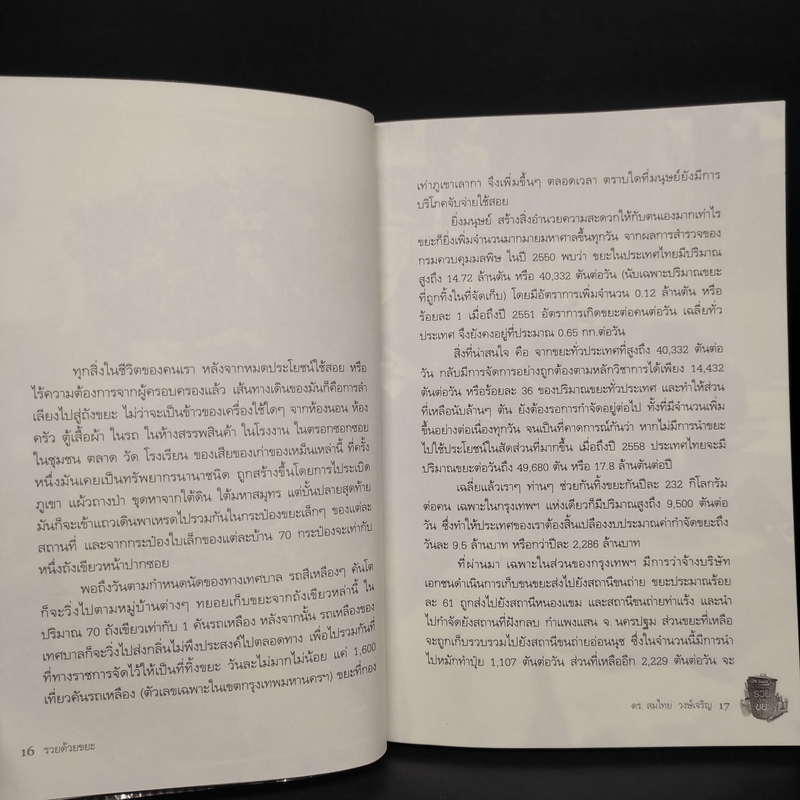 ทุกสิ่งในชีวิตของคนเรา หลังจากหมดประโยชน์ใช้สอย หรือ
ไร้ความต้องการจากผู้ครอบครองแล้ว เส้นทางเดินของมันก็คือการลำ
เลียงไปสู่ถังขยะ ไม่ว่าจะเป็นข้าวของเครื่องใช้ใดๆ จากห้องนอน ห้อง
ครัว ตู้เสื้อผ้า ในรถ ในห้างสรรพสินค้า ในโรงงาน ในตรอกซอกซอย
ในชุมชน ตลาด วัด โรงเรียน ของเสียของเก่าของเหม็นเหล่านี้ ที่ครั้ง
หนึ่งมันเคยเป็นทรัพยากรนานาชนิด ถูกสร้างขึ้นโดยการไประเบิด
ภูเขา แผ้วถางป่า ขุดหาจากใต้ดิน ใต้มหาสมุทร แต่บั้นปลายสุดท้าย
มันก็จะเข้าแถวเดินพาเหรดไปรวมกันในกระป๋องขยะเล็กๆ ของแต่ละ
สถานที่ และจากกระป๋องใบเล็กของแต่ละบ้าน 70 กระป๋องจะเท่ากับ
หนึ่งถังเขียวหน้าปากซอย
พอถึงวันตามกำหนดนัดของทางเทศบาล รถสีเหลืองๆ คันโต
ก็จะวิ่งไปตามหมู่บ้านต่างๆ ทยอยเก็บขยะจากถังเขียวเหล่านี้ ใน
ปริมาณ 70 ถังเขียวเท่ากับ 1 คันรถเหลือง หลังจากนั้น รถเหลืองของ
เทศบาลก็จะวิ่งไปส่งกลิ่นไม่พึงประสงค์ไปตลอดทาง เพื่อไปรวมกันที่
ที่ทางราชการจัดไว้ให้เป็นที่ทิ้งขยะ วันละไม่มากไม่น้อย แค่ 1,600
เที่ยวคันรถเหลือง (ตัวเลขเฉพาะในเขตกรุงเทพมหานครฯ) ขยะที่กอง
16 รวยด้วยขยะ
เท่าภูเขาเลากา จึงเพิ่มขึ้นๆ ตลอดเวลา ตราบใดที่มนุษย์ยังมีการ
บริโภคจับจ่ายใช้สอย
ยิ่งมนุษย์ สร้างสิ่งอำนวยความสะดวกให้กับตนเองมากเท่าไร
ขยะก็ยิ่งเพิ่มจำนวนมากมายมหาศาลขึ้นทุกวัน จากผลการสำรวจของ
กรมควบคุมมลพิษ ในปี 2550 พบว่า ขยะในประเทศไทยมีปริมาณ
สูงถึง 14.72 ล้านตัน หรือ 40,332 ตันต่อวัน (นับเฉพาะปริมาณขยะ
ที่ถูกทิ้งในที่จัดเก็บ) โดยมีอัตราการเพิ่มจำนวน 0.12 ล้านตัน หรือ
ร้อยละ 1 เมื่อถึงปี 2551 อัตราการเกิดขยะต่อคนต่อวัน เฉลี่ยทั่ว
ประเทศ จึงยังคงอยู่ที่ประมาณ 0.65 กก.ต่อวัน
สิ่งที่น่าสนใจ คือ จากขยะทั่วประเทศที่สูงถึง 40,332 ตันต่อ
วัน กลับมีการจัดการอย่างถูกต้องตามหลักวิชาการได้เพียง 14,432
ตันต่อวัน หรือร้อยละ 36 ของปริมาณขยะทั่วประเทศ และทำให้ส่วน
ที่เหลือนับล้านๆ ตัน ยังต้องรอการกำจัดอยู่ต่อไป ทั้งที่มีจำนวนเพิ่ม
ขึ้นอย่างต่อเนื่องทุกวัน จนเป็นที่คาดการณ์กันว่า หากไม่มีการนำขยะ
ไปใช้ประโยชน์ในสัดส่วนที่มากขึ้น เมื่อถึงปี 2558 ประเทศไทยจะมี
ปริมาณขยะต่อวันถึง 49,680 ตัน หรือ 17.8 ล้านตันต่อปี
เฉลี่ยแล้วเราๆ ท่านๆ ช่วยกันทิ้งขยะกันปีละ 232 กิโลกรัม
ต่อคน เฉพาะในกรุงเทพฯ แห่งเดียวก็มีปริมาณสูงถึง 9,500 ตันต่อ
วัน ซึ่งทำให้ประเทศของเราต้องสิ้นเปลืองงบประมาณค่ากำจัดขยะถึง
วันละ 9.5 ล้านบาท หรือกว่าปีละ 2,286 ล้านบาท
ที่ผ่านมา เฉพาะในส่วนของกรุงเทพฯ มีการว่าจ้างบริษัท
เอกชนดำเนินการเก็บขนขยะส่งไปยังสถานีขนถ่าย ขยะประมาณร้อย
ละ 61 ถูกส่งไปยังสถานีหนองแขม และสถานีขนถ่ายท่าแร้ง และนำ
ไปกำจัดยังสถานที่ฝังกลบ กำแพงแสน จ. นครปฐม ส่วนขยะที่เหลือ
จะถูกเก็บรวบรวมไปยังสถานีขนถ่ายอ่อนนุช ซึ่งในจำนวนนี้มีการนำ
ไปหมักทำปุ๋ย 1,107 ตันต่อวัน ส่วนที่เหลืออีก 2,229 ตันต่อวัน จะ
ดร. สมไทย วงษ์เจริญ 17
รวย
ขยะ